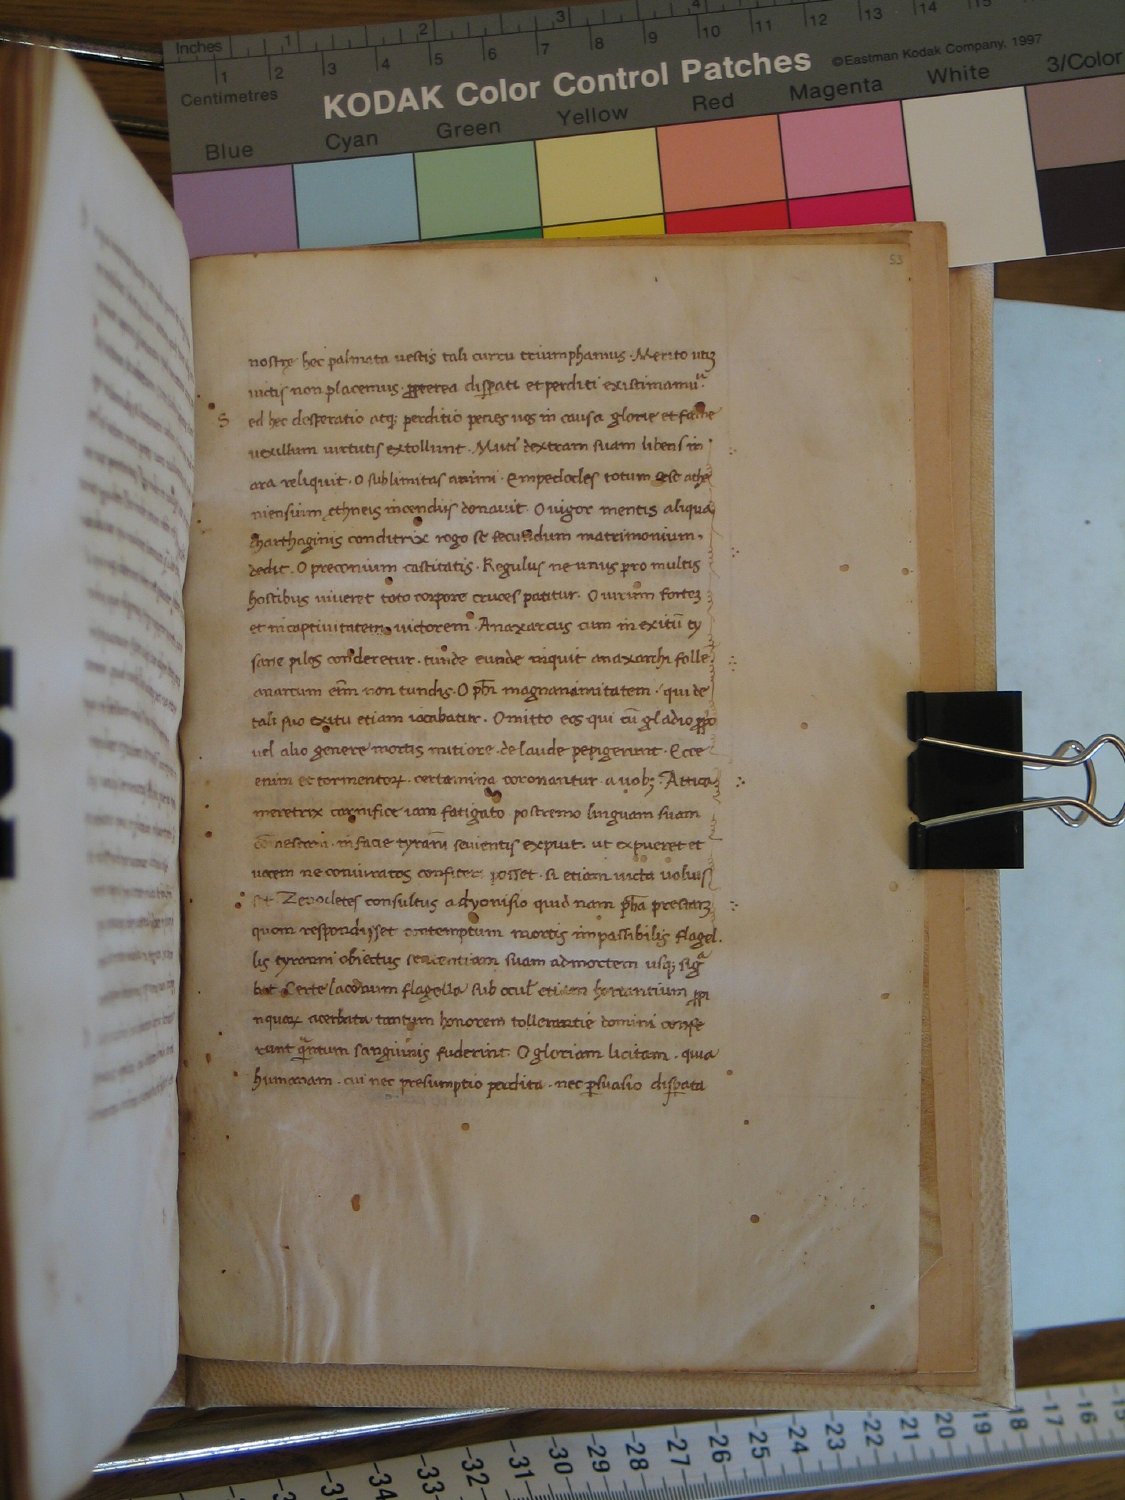 Inches 1 2 3 4
1 2 3 4 5 6 7 8 9 10 11 12 13 14 15
Centimetres
KODAK Color Control Patches ©Eastman Kodak Company, 1997
Blue Cyan Green Yellow Red Magenta White 3/Color
53
nostrę hęc palmata uestis tali curru triumphamus · Merito utiꝫ
uictis non placemus · ꝓpterea disꝑati et perditi existimamuͬ ·
S ed hec desperatio atqꝫ perditio penes uos in causa glorie et fame
uexillum uirtutis extollunt · Muti dextram suam libens in
ara reliquit · O sublimitas animi · Empedocles totum sese athe
niensium ęthneis incendiis donauit · O uigor mentis aliqua
charthaginis conditrix rogo se secundum matrimonium ·
dedit · O preconium castitatis · Regulus ne unus pro multis
hostibus uiueret toto corpore cruces patitur · O uirum forteꝫ
et in captiuitatem uictorem · Anaxarcus cum in exitū ty
sane pilos conderetur · tunde tunde inquit anaxarchi folle
anarcum em̄ non tundis · O phi magnanimitatem · qui de
tali suo exitu etiam iocabatur · Omitto eos qui cū gladio ꝓpo
uel alio genere mortis mitiore · de laude pepigerunt · Ecce
enim et tormentoꝝ · certamina coronantur a uobꝫ · Attica
meretrix carnifice iam fatigato postremo linguam suam
in facie tyranni seuientis expuit · ut expueret et
uocem ne coniuratos confiteri posset · si etiam uicta uoluis
set Zenocletes consultus a dyonisio quid nam phīa prestaꝫ
quom respondisset contemptum mortis impassibilis flagel ·
lis tyranni obiectus sententiam suam ad mortem usqꝫ sigͣ
bat Certe laconum flagella sub ocul̄ etiam hortantium ꝓpi
nquoꝝ acerbata tantum honorem tollerantie domini confe
runt qͣntum sanguinis fuderint · O gloriam licitam · quia
humanam · cui nec presumptio perdita · nec ꝑsuasio disꝑata
-35 -34 -33 -32 -31 -30 -29 -28 -27 -26 -25 -24 -23 -22 -21 -20 -19 -18 -17 -16 -15